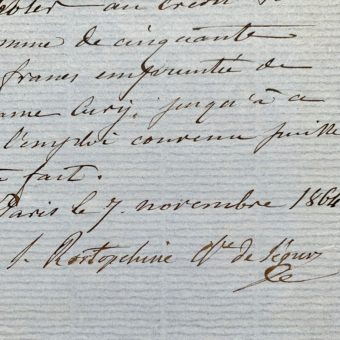 au Crédit
somme de cinquante
francs empruntée de
jusqu'à ce
l'emploi convenu puisse
fait.
Paris le 7. novembre 1864
S. Rostopchine Ctesse de Ségur